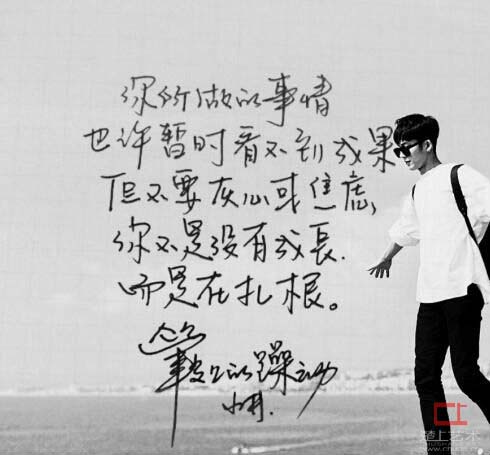 你所做的事情
也许暂时看不到成果
但不要灰心或焦虑,
你不是没有成長.
而是在扎根。
的躁动
楚上艺术